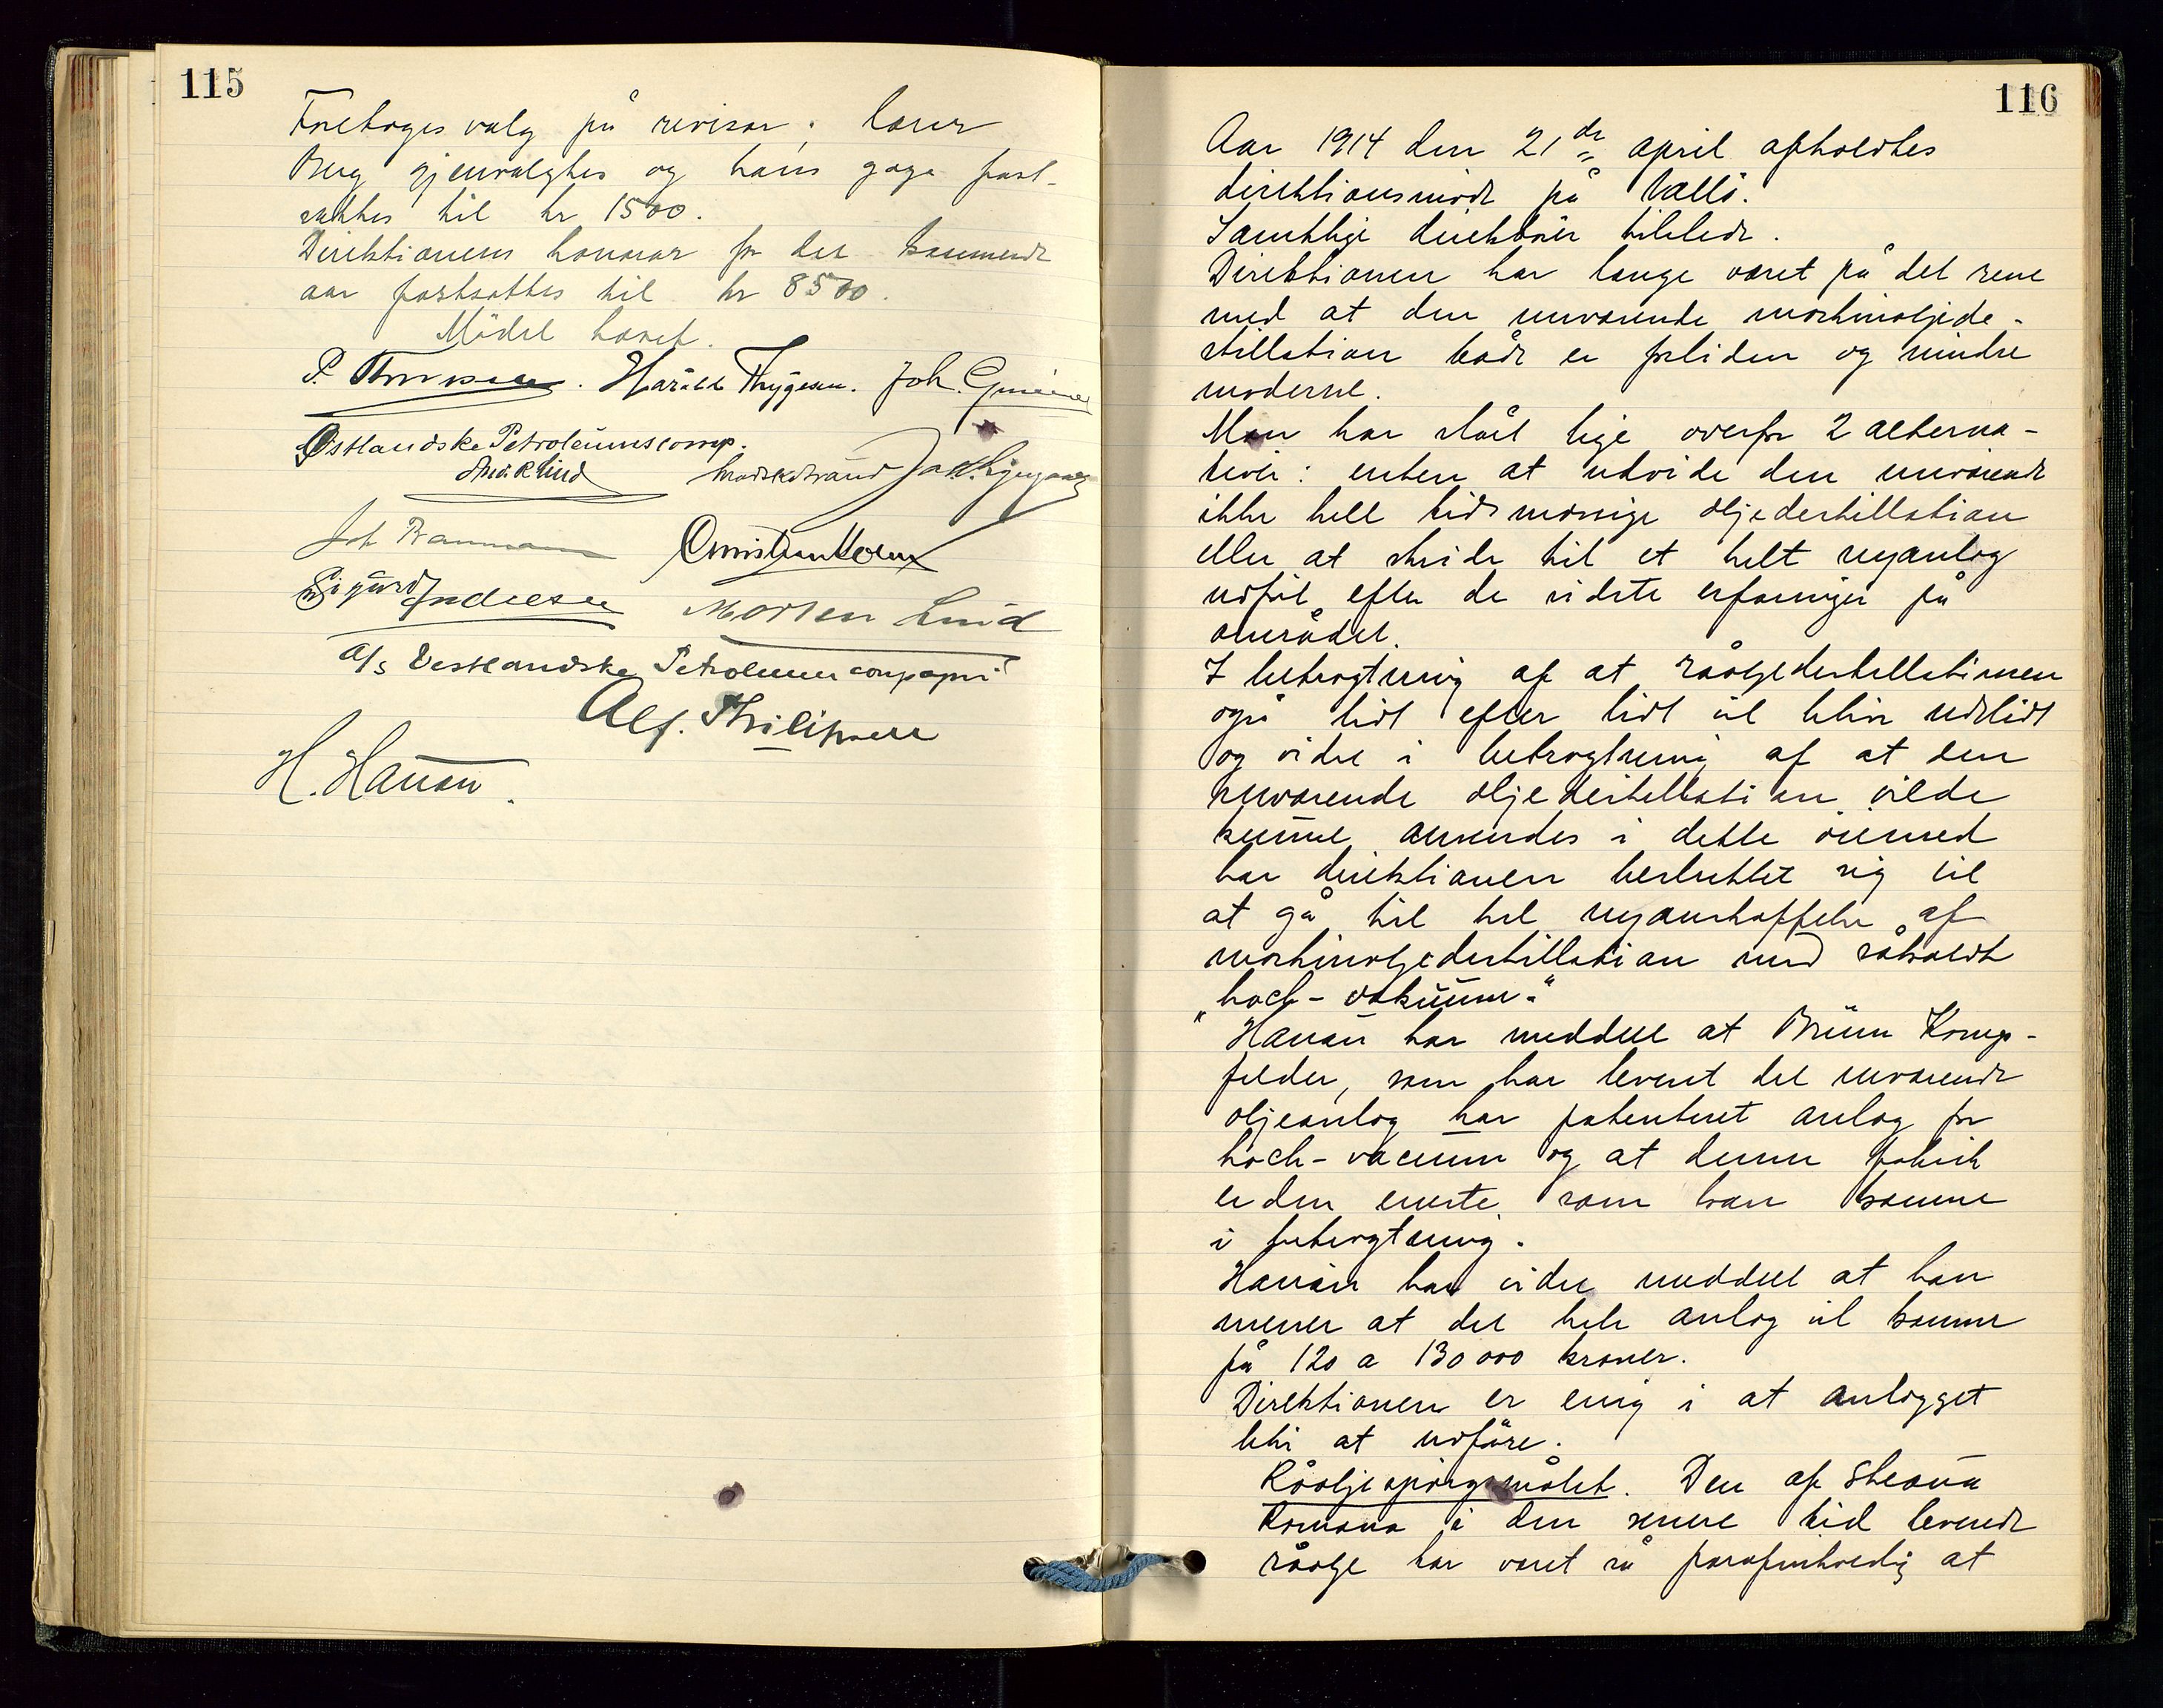 115
Foretoges valg på revisor. Laur
Berg gjenvalgtes og hans gage fast-
sattes til kr 1500.
Direktionens honorar for det kommende
aar fastsattes til kr 8500.
Mødet hævet.
Harald Thygesen. Joh.
Østlandske Petroleumscomp.
Lind
Joh
Sigurd Christian Holm
Morten Lind
A/s Vestlandske Petroleumcompagni
Alf. Philipsen
H. Hanau.
116
Aar 1914 den 21de april afholdtes
direktionsmøde på Vallö.
Samtlige direktører tilstede.
Direktionen har længe været på det rene
med at den nuværende maskinoljede-
stillation både er forliden og mindre
moderne.
Man har stået lige overfor 2 alterna-
tiver: enten at utvide den nuværende
ikke helt tidsmæssige oljedestillation
eller at skride til et helt nyanlæg
udført efter de sidste erfaringer på
området.
I betragtning af at råoljedestillationen
også lidt efter lidt vil blive udslidt
og videre i betragtning af at den
nuværende oljedestillation vilde
kunne anvendes i dette øiemed
har direktionen besluttet sig til
at gå til hel nyanskaffelse af
maskinoljedestillation med såkaldt
„hoch-vakuum."
Hanau har meddelt at Brünn Königs-
felder, som har leveret det nuværende
oljeanlæg har patenteret anlæg for
hoch-vacuum og at denne fabrik
er den eneste som kan komme
i betragtning.
Hanau har videre meddelt at han
mener at det hele anlæg vil komme
på 120 a 130000 kroner.
Direktionen er enig i at anlægget
blir at udføre.
Råoljespørgsmålet. Den af Steaua
Romana i den senere tid leverede
råolje har været så parafinholdig at